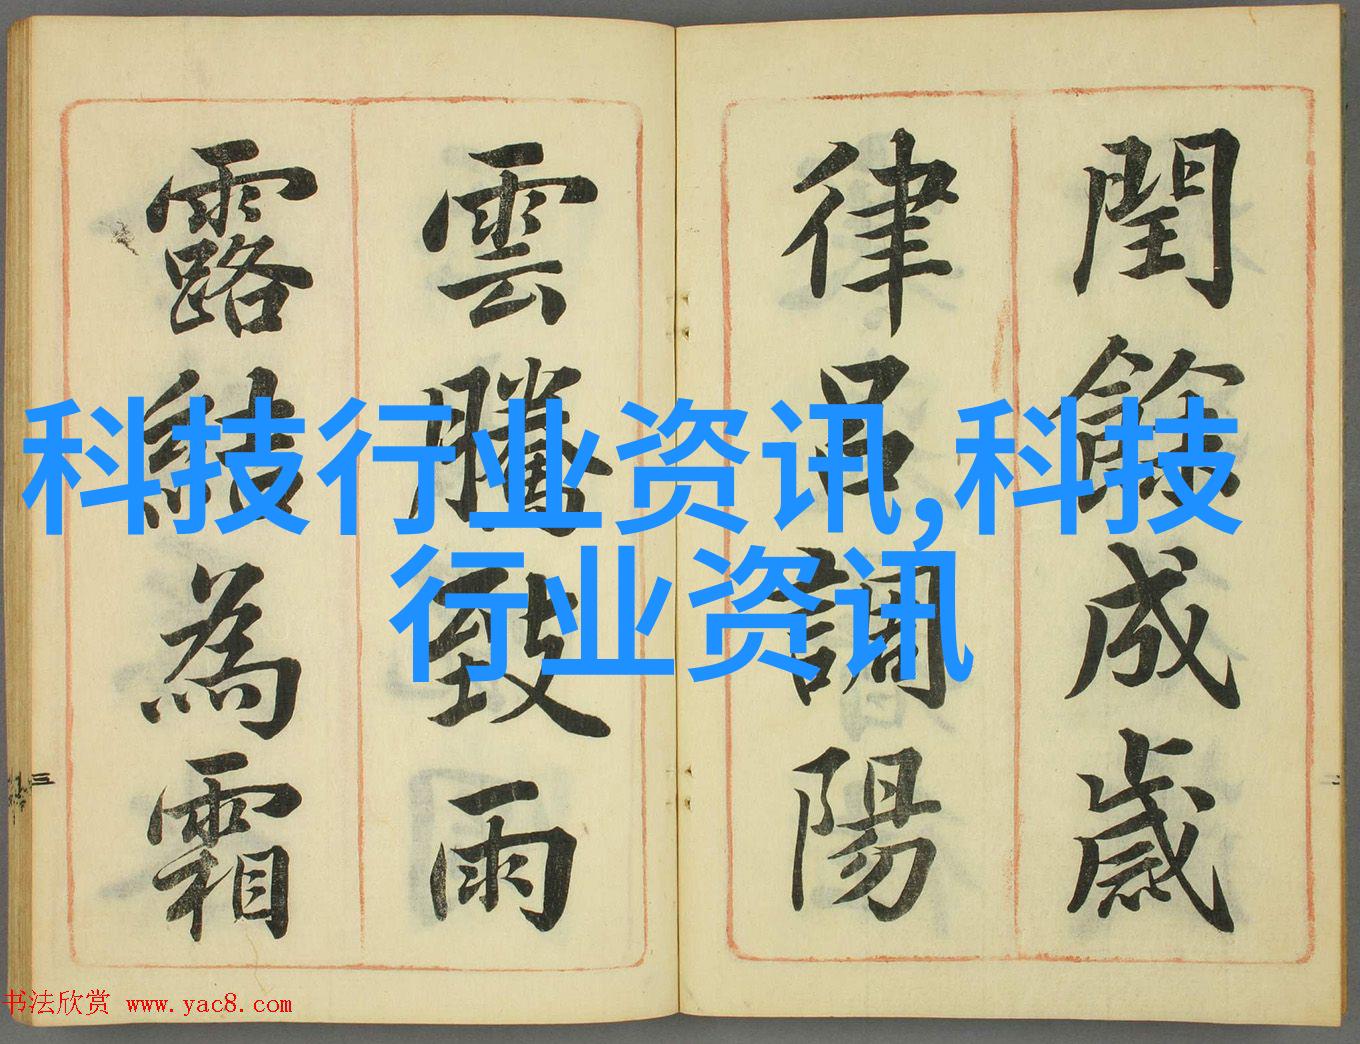 閏餘成歲
律呂調陽
雲騰致雨
露結為霜
科技行业资讯,科技
行业资讯
三
二
书法欣赏 www.yac8.com